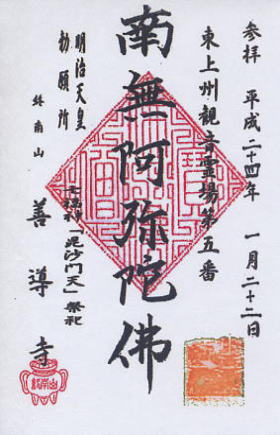 参拝 平成二十四年 一月二十二日
東上州観音霊場第五番
南無阿弥陀佛
七福神「毘沙門天」祭祀
明治天皇
勅願所
終南山
善導寺